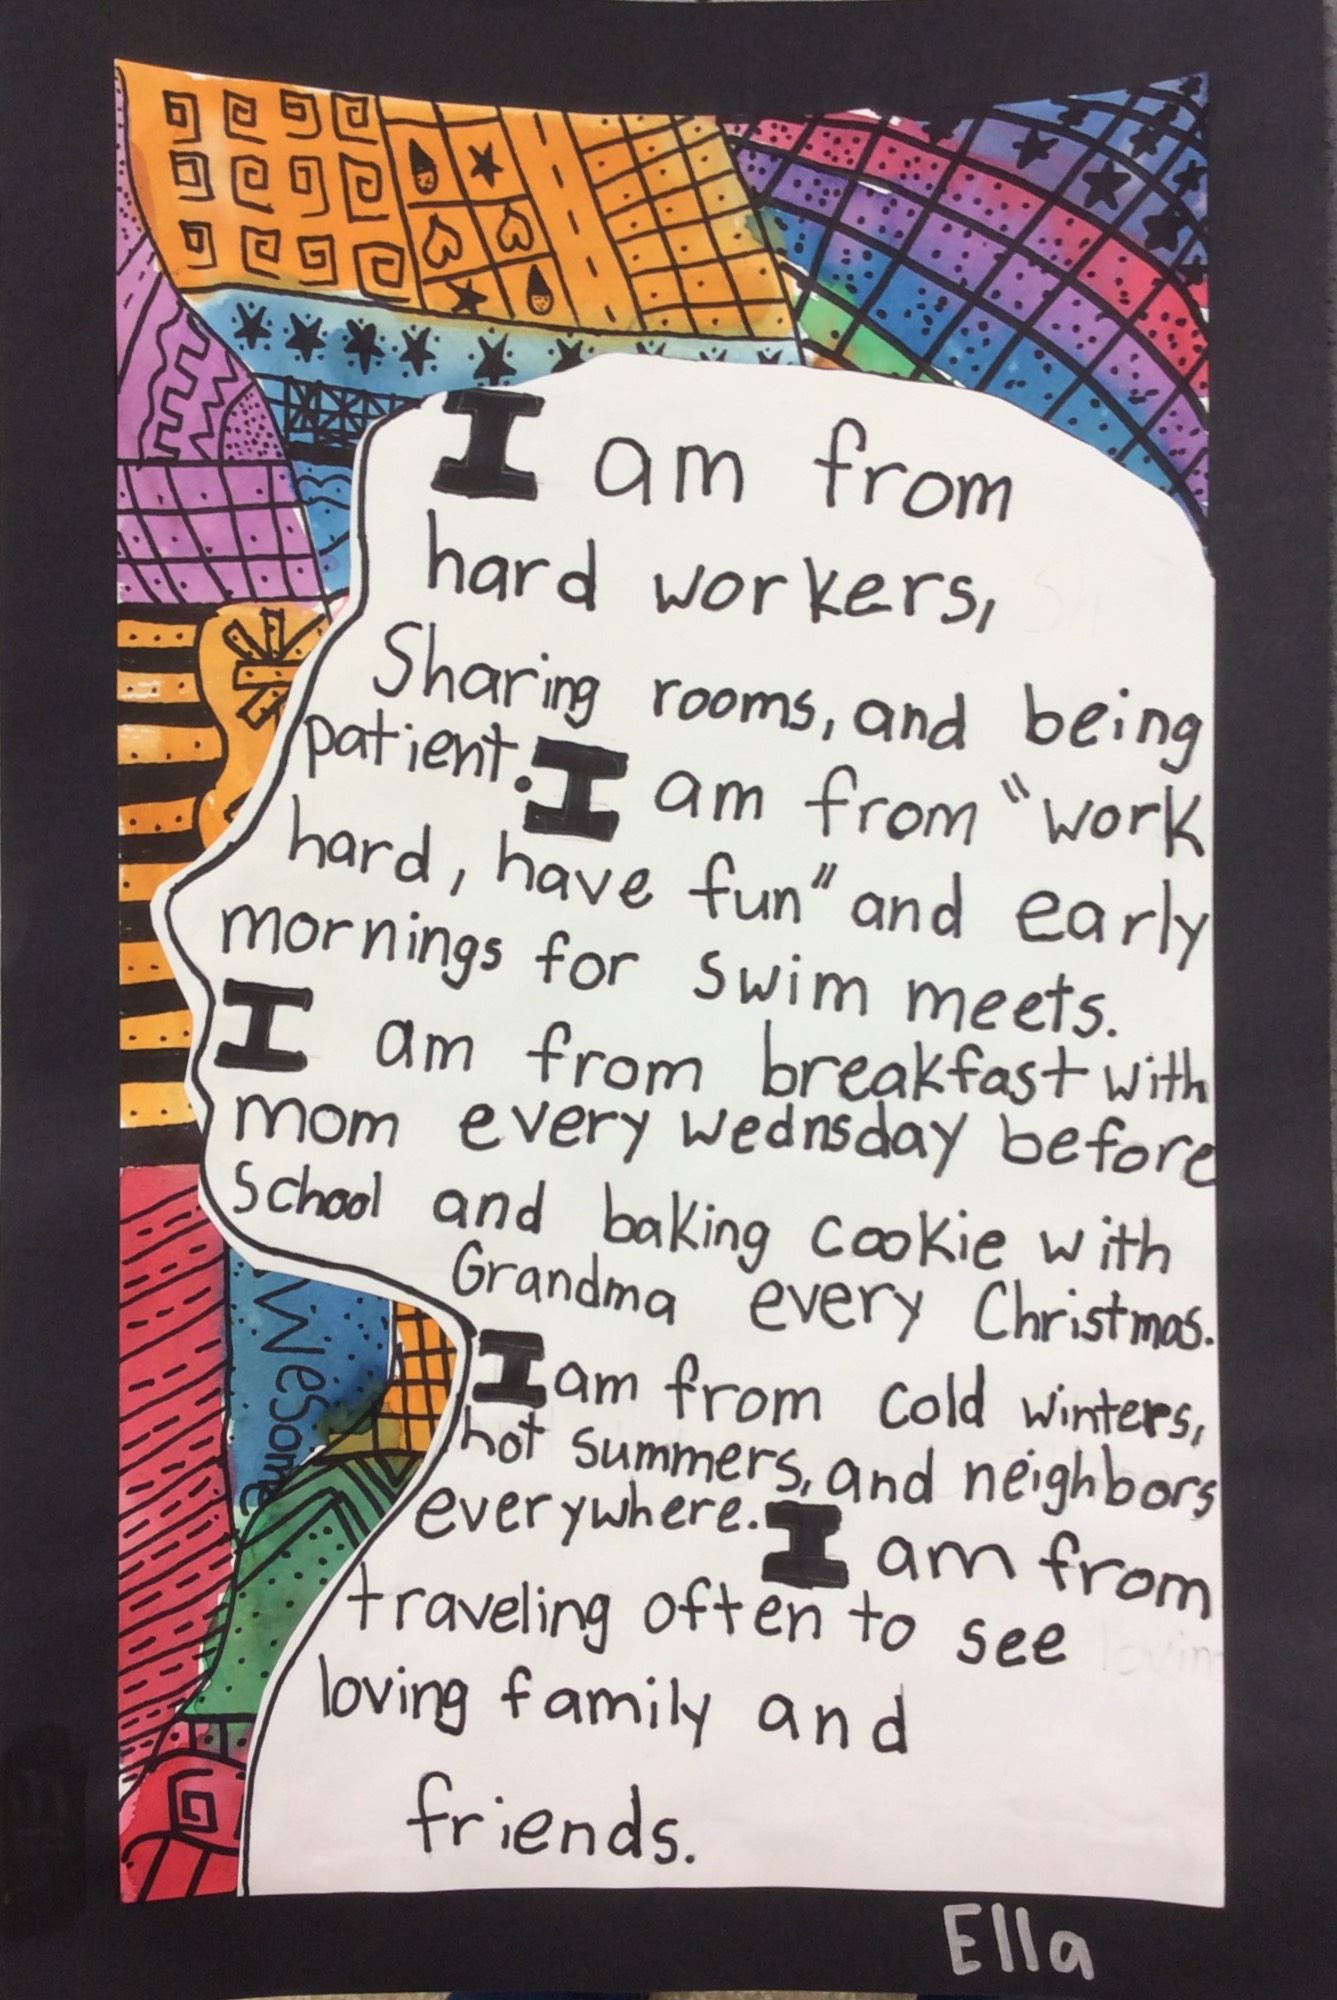 I am from
hard workers,
Sharing rooms, and being
patient. I am from "work
hard, have fun" and early
mornings for swim meets.
I am from breakfast with
mom every wednsday before
School and baking cookie with
Grandma every Christmas.
I am from cold winters,
hot summers, and neighbors
everywhere. I am from
traveling often to see
loving family and
friends.
wesome
Ella